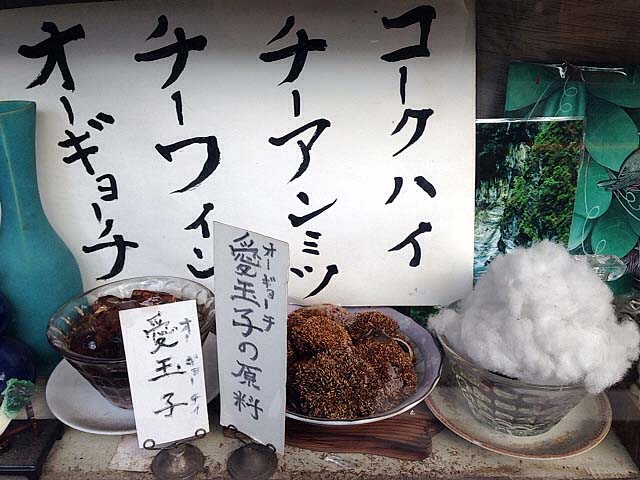 コークハイ
チーアンミツ
チーワイン
オーギョーチ
オーギョチ
愛玉子の原料
オーギョーチ
愛玉子